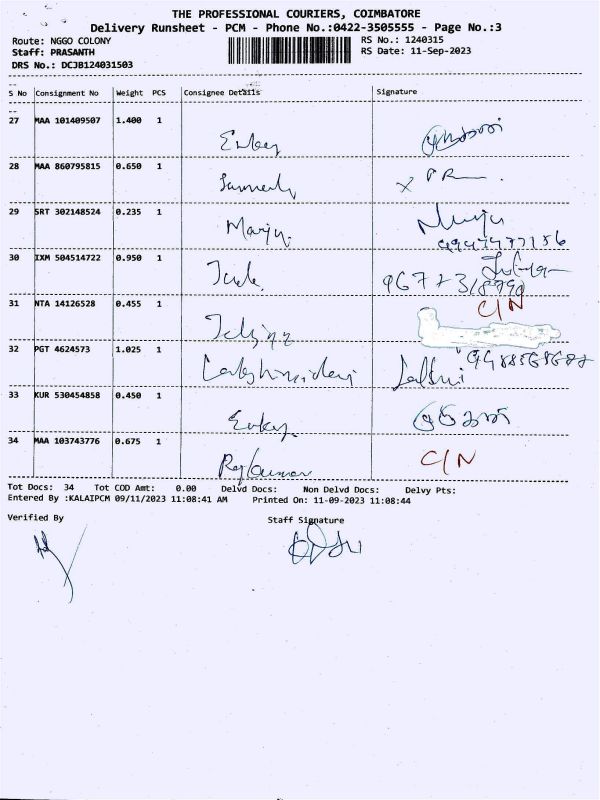 THE PROFESSIONAL COURIERS, COIMBATORE
Delivery Runsheet - PCM - Phone No.:0422-3505555 - Page No.:3
Route: NGGO COLONY
RS No.: 1240315
Staff: PRASANTH
RS Date: 11-Sep-2023
DRS No.: DCJB124031503
S No Consignment No Weight PCS Consignee Details Signature
27 MAA 101409507 1.400 1
28 MAA 860795815 0.650 1
29 SRT 302148524 0.235 1 Manju
30 IXM 504514722 0.950 1
31 NTA 14126528 0.455 1 C/N
32 PGT 4624573 1.025 1
33 KUR 530454858 0.450 1
34 MAA 103743776 0.675 1 Rajkumar C/N
Tot Docs: 34 Tot COD Amt: 0.00 Delvd Docs: Non Delvd Docs: Delvy Pts:
Entered By :KALAIPCM 09/11/2023 11:08:41 AM Printed On: 11-09-2023 11:08:44
Verified By
Staff Signature